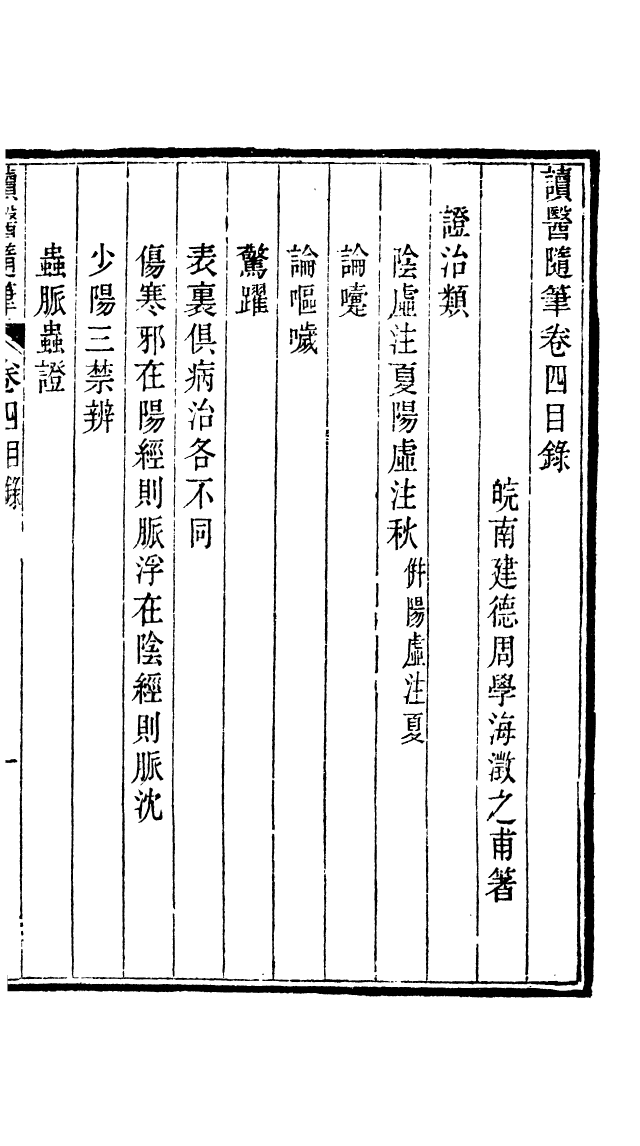 讀醫隨筆卷四目錄
皖南建德周學海澂之甫著
證治類
陰虛注夏陽虛注秋 併陽虛注夏
論嚏
論嘔噦
驚躍
表裏俱病治各不同
傷寒邪在陽經則脈浮在陰經則脈沈
少陽三禁辨
蟲脈蟲證
讀醫隨筆 卷四目錄 一